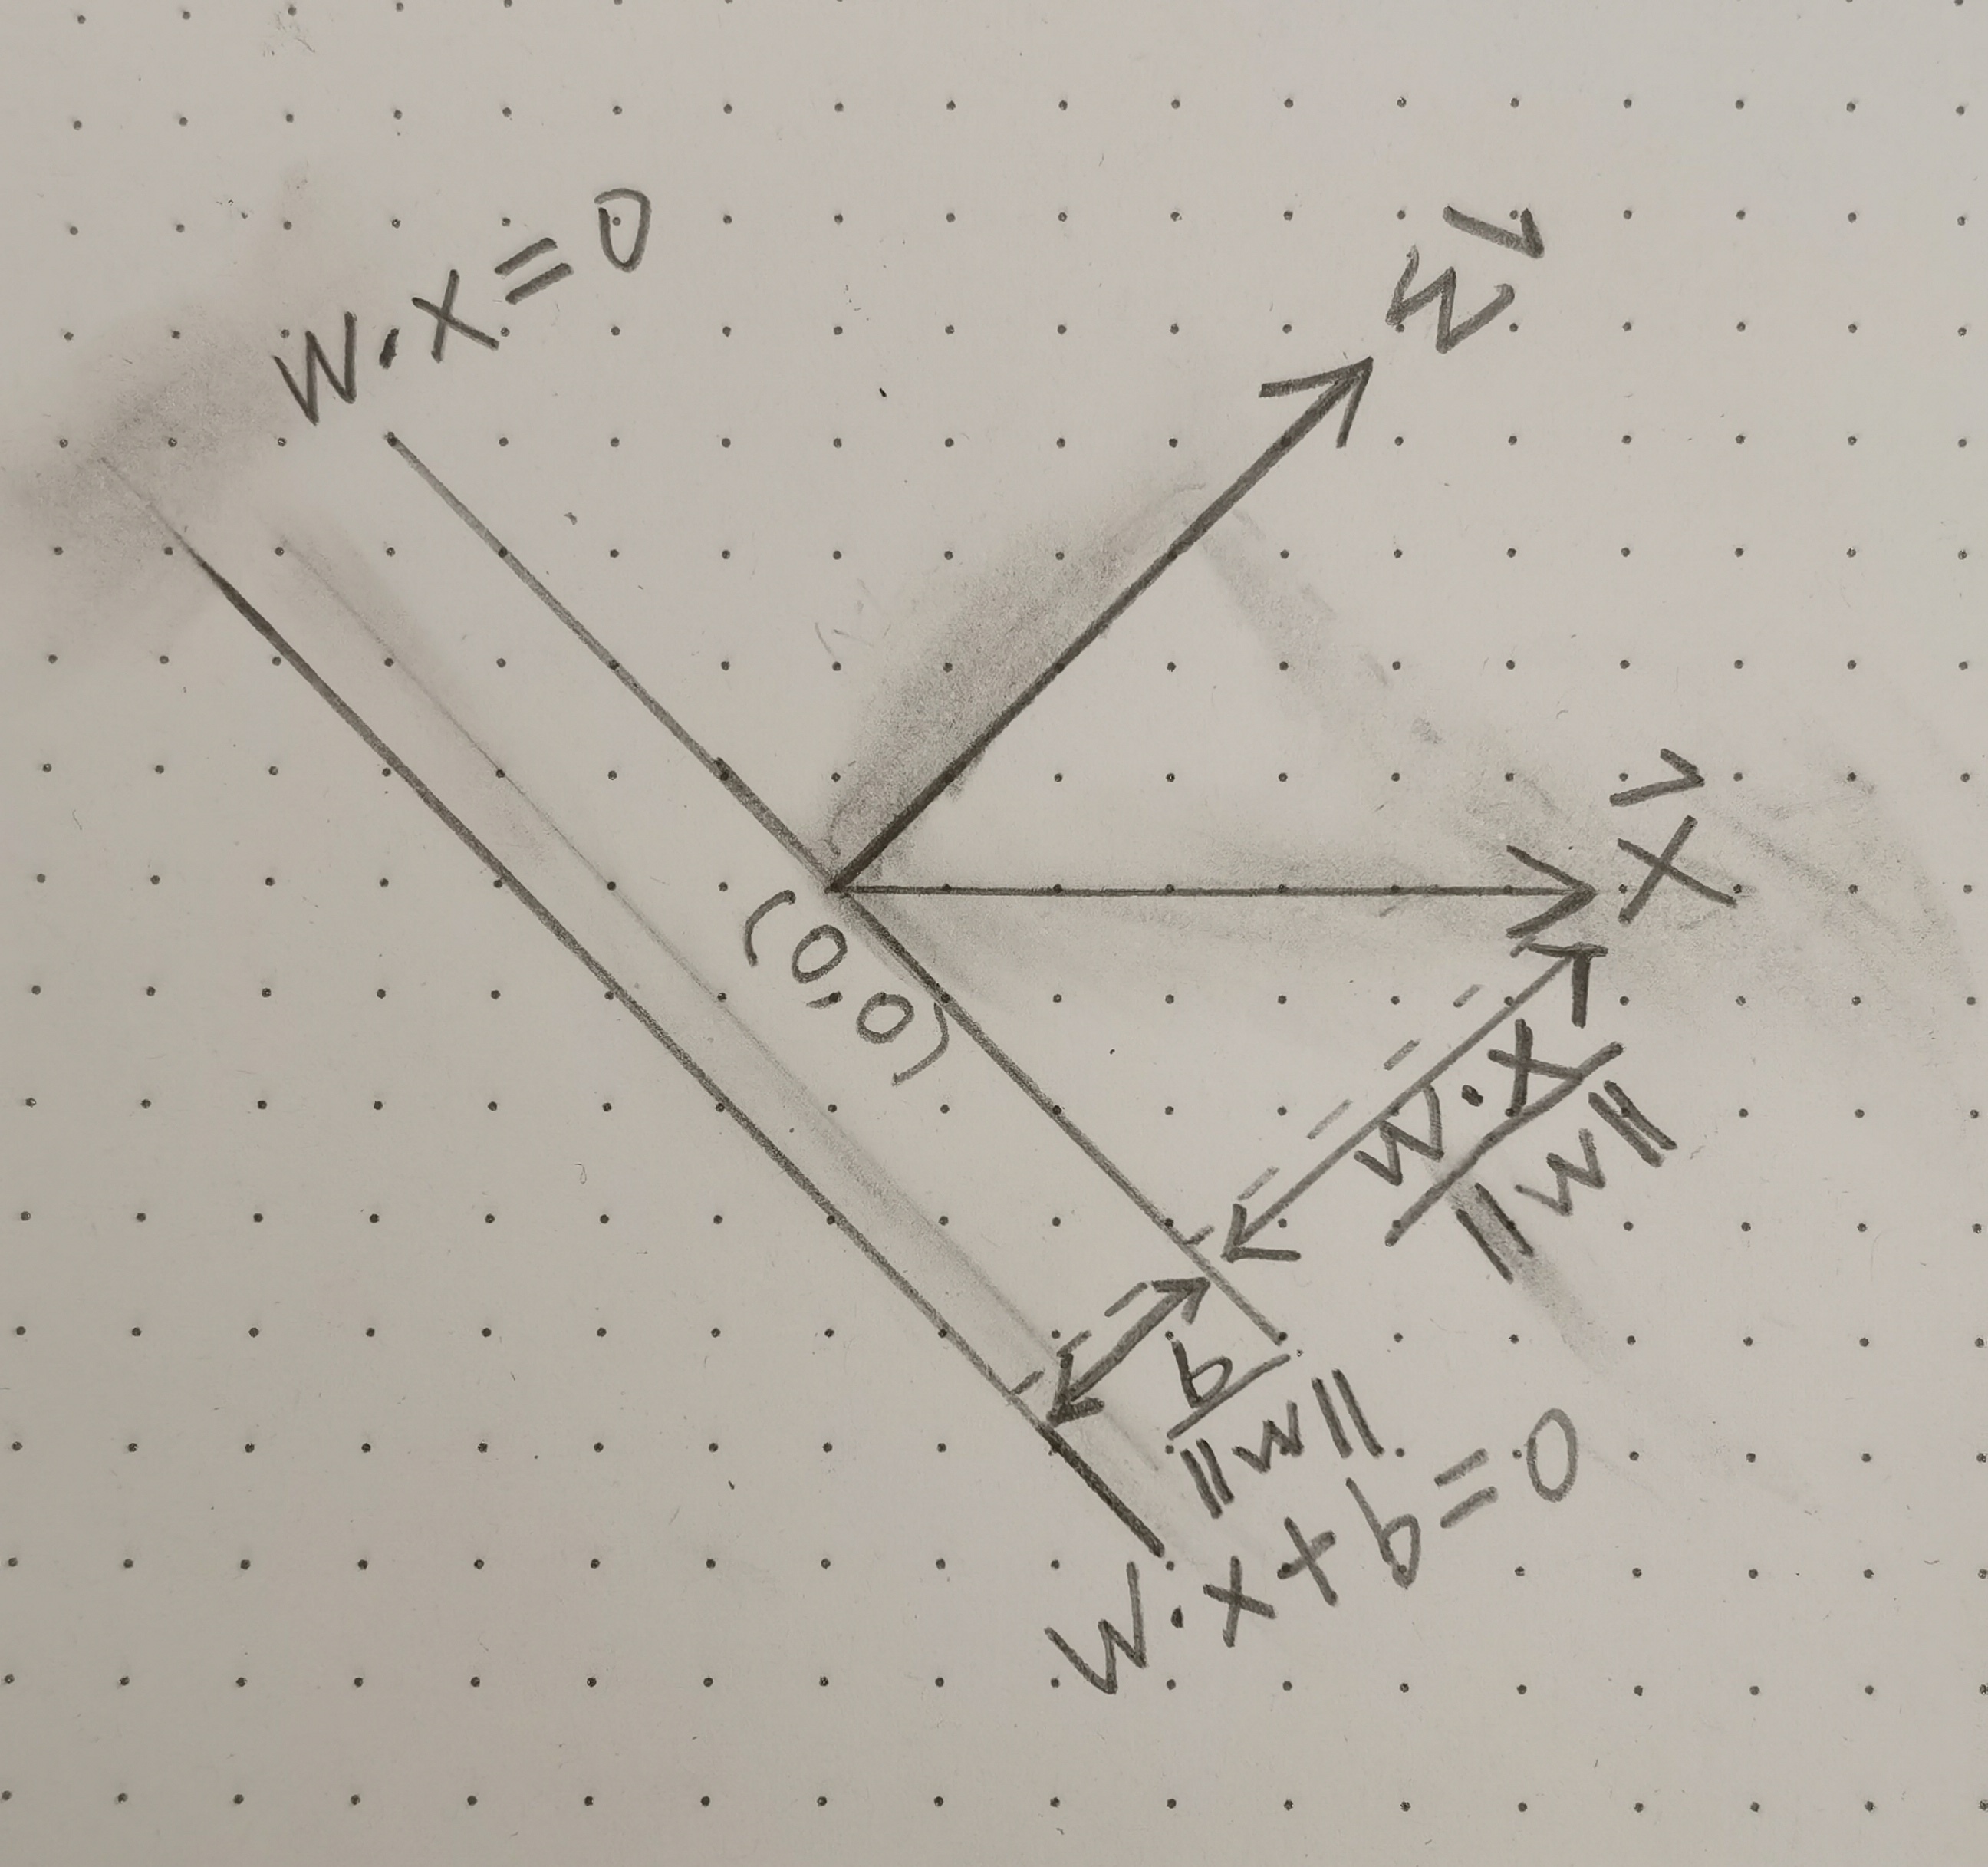 w·x=0
w⃗
x⃗
(0,0)
w·x
||w||
b
||w||
w·x+b=0